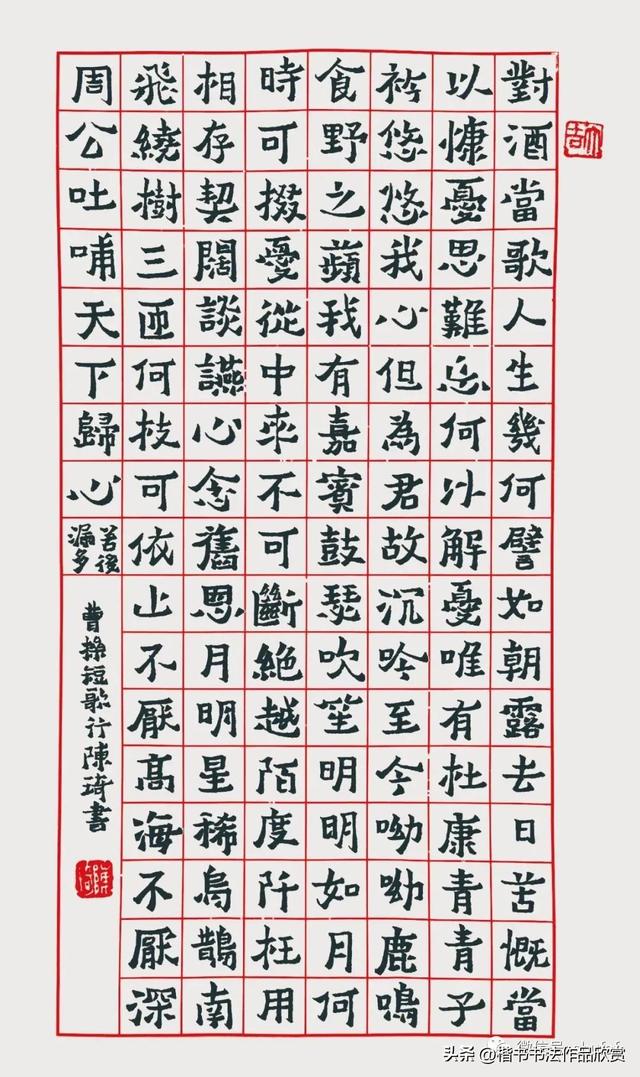 對酒當歌人生幾何譬如朝露去日苦慨當
以慷憂思難忘何以解憂唯有杜康青青子
衿悠悠我心但為君故沉吟至今呦呦鹿鳴
食野之蘋我有嘉賓鼓瑟吹笙明明如月何
時可掇憂從中來不可斷絕越陌度阡枉用
相存契闊談讌心念舊恩月明星稀烏鵲南
飛繞樹三匝何枝可依山不厭高海不厭深
周公吐哺天下歸心
苦後
漏多
曹操短歌行陳琦書
头条@楷书书法作品欣赏